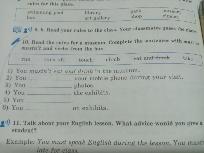 rules for this place.
swimming pool library park
bus art gallery shop
9. Read your rules to the class. Your classmates guess the place.
10. Read the rules for a museum. Complete the sentences with must or
mustn't and verbs from the box.
run turn off touch climb eat and drink take
1) You mustn't eat and drink in the museum.
2) You your mobile phone during your visit.
3) You photos.
4) You the exhibits.
5) You
6) You on exhibits.
11. Talk about your English lesson. What advice would you give a
student?
Example: You must speak English during the lesson. You must